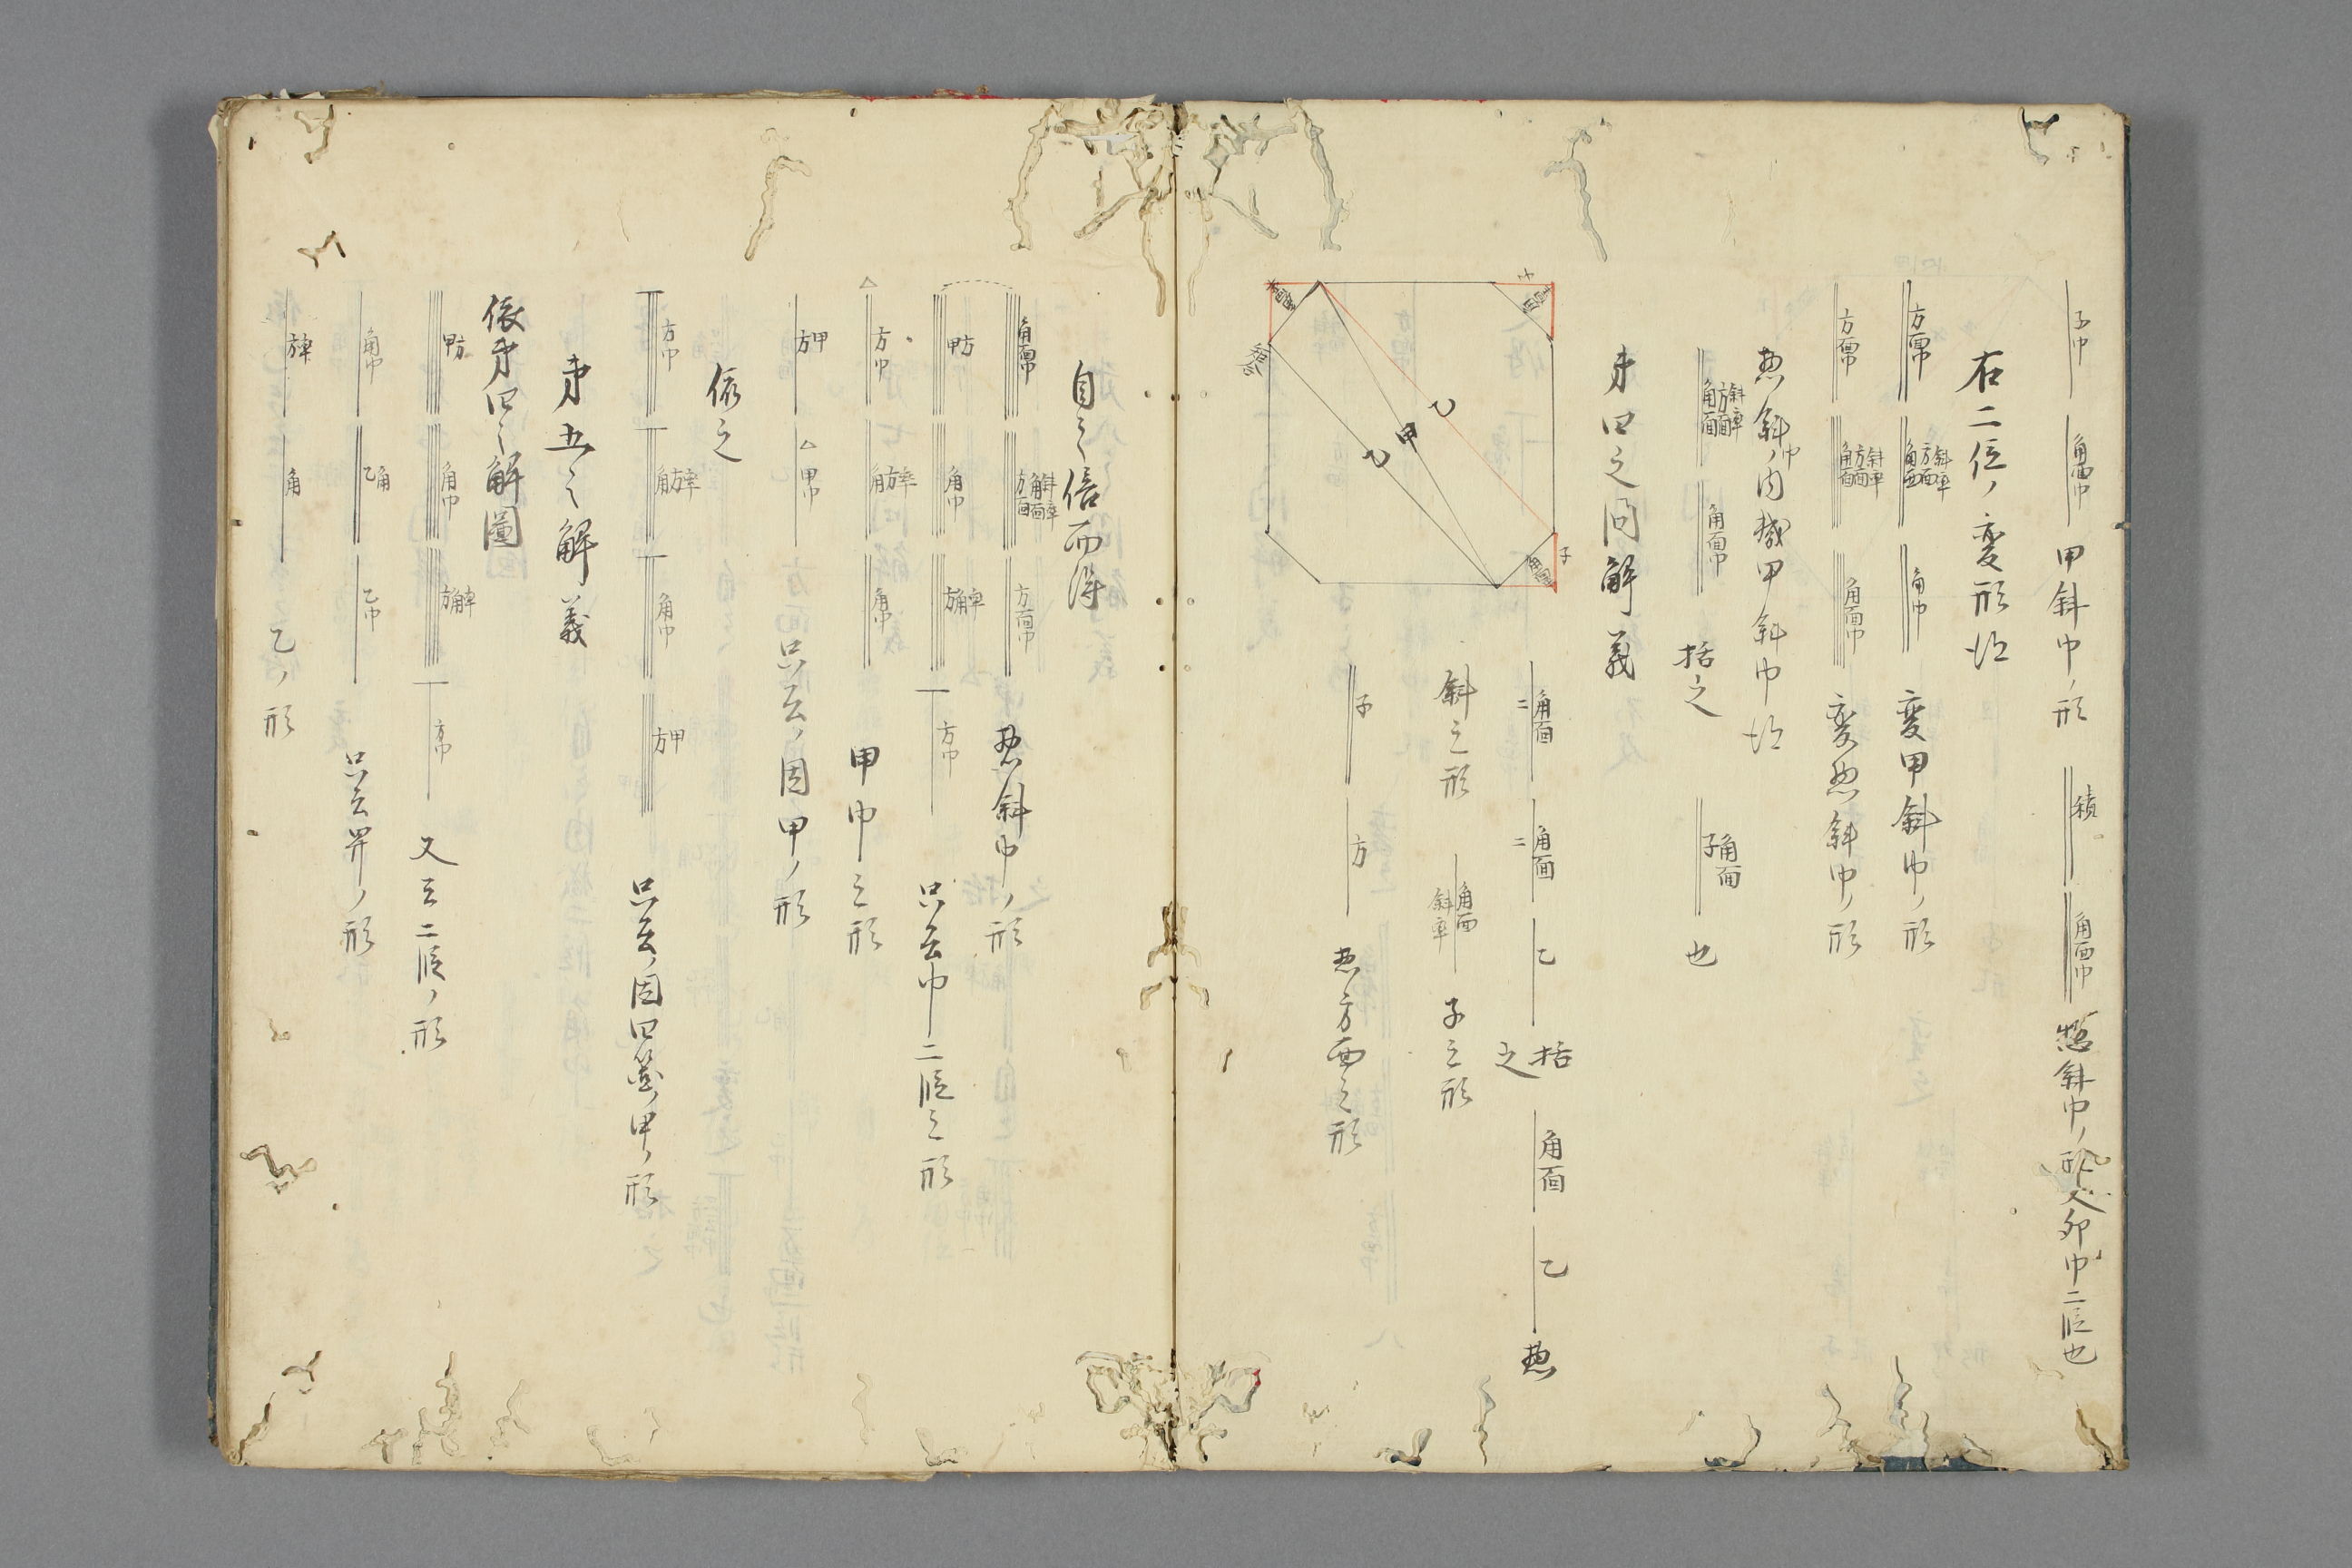 子巾 角面巾 甲斜巾ノ形 積 角面巾 惣斜巾ノ形 又卯巾二位也
右二位ノ変形也
方面巾 斜率方面角面 角巾 変甲斜巾ノ形
方面巾 斜率方面角面 角面巾 変惣斜巾ノ形
惣斜巾ノ内截甲斜巾巾也
斜率方面角面 角面巾 括之 子角面 也
第四之問解義
小
子
角面
乙
甲
乙
二角面 二角面 乙 括之 角面 乙 惣
斜之形 角面斜率 子之形
子 方 惣方面之形
自之倍而得
角面巾 斜率角面方面 方面巾 惣斜巾ノ形
甲方 角巾 方角率 方巾 只云巾二位之形
方巾 角方率 角巾 甲巾之形
方甲 甲巾 只云ノ因甲ノ形
依之
方巾 角方率 角巾 方甲 只云ノ因四箇ノ甲ノ形
第五之解義
依第四之解圖
甲方 角巾 方角率 方巾 又云二位ノ形
角巾 乙角 乙巾 只云巾ノ形
方率 角 乙ノ形